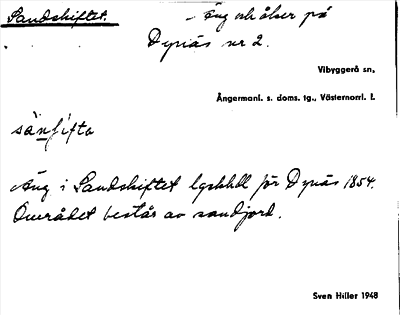 Sandskiftet. – Äng och åker på
Dynäs nr 2.
Vibyggerå sn,
Ångermanl. s. doms. tg., Västernorrl. l.
sa`nʃifta
Äng i Sandskiftet lgskhdl för Dynäs 1854.
Området består av sandjord.
Sven Hiller 1948